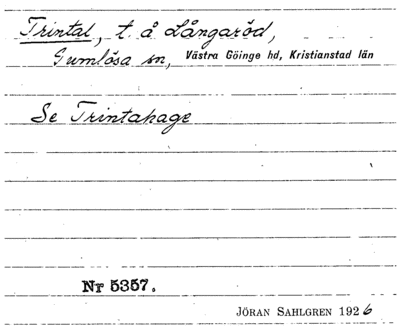 Trintal, t. å Långaröd,
Gumlösa sn, Västra Göinge hd, Kristianstad län
Se Trintahage
Nr 5357.
JÖRAN SAHLGREN 1926